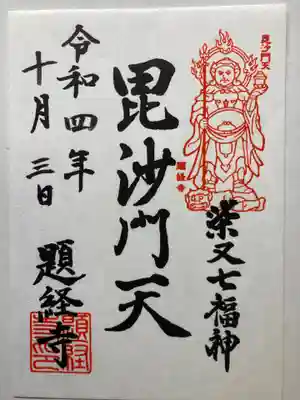 毘沙門天
題経寺
柴又七福神
毘沙門天
令和四年
十月三日
題経寺